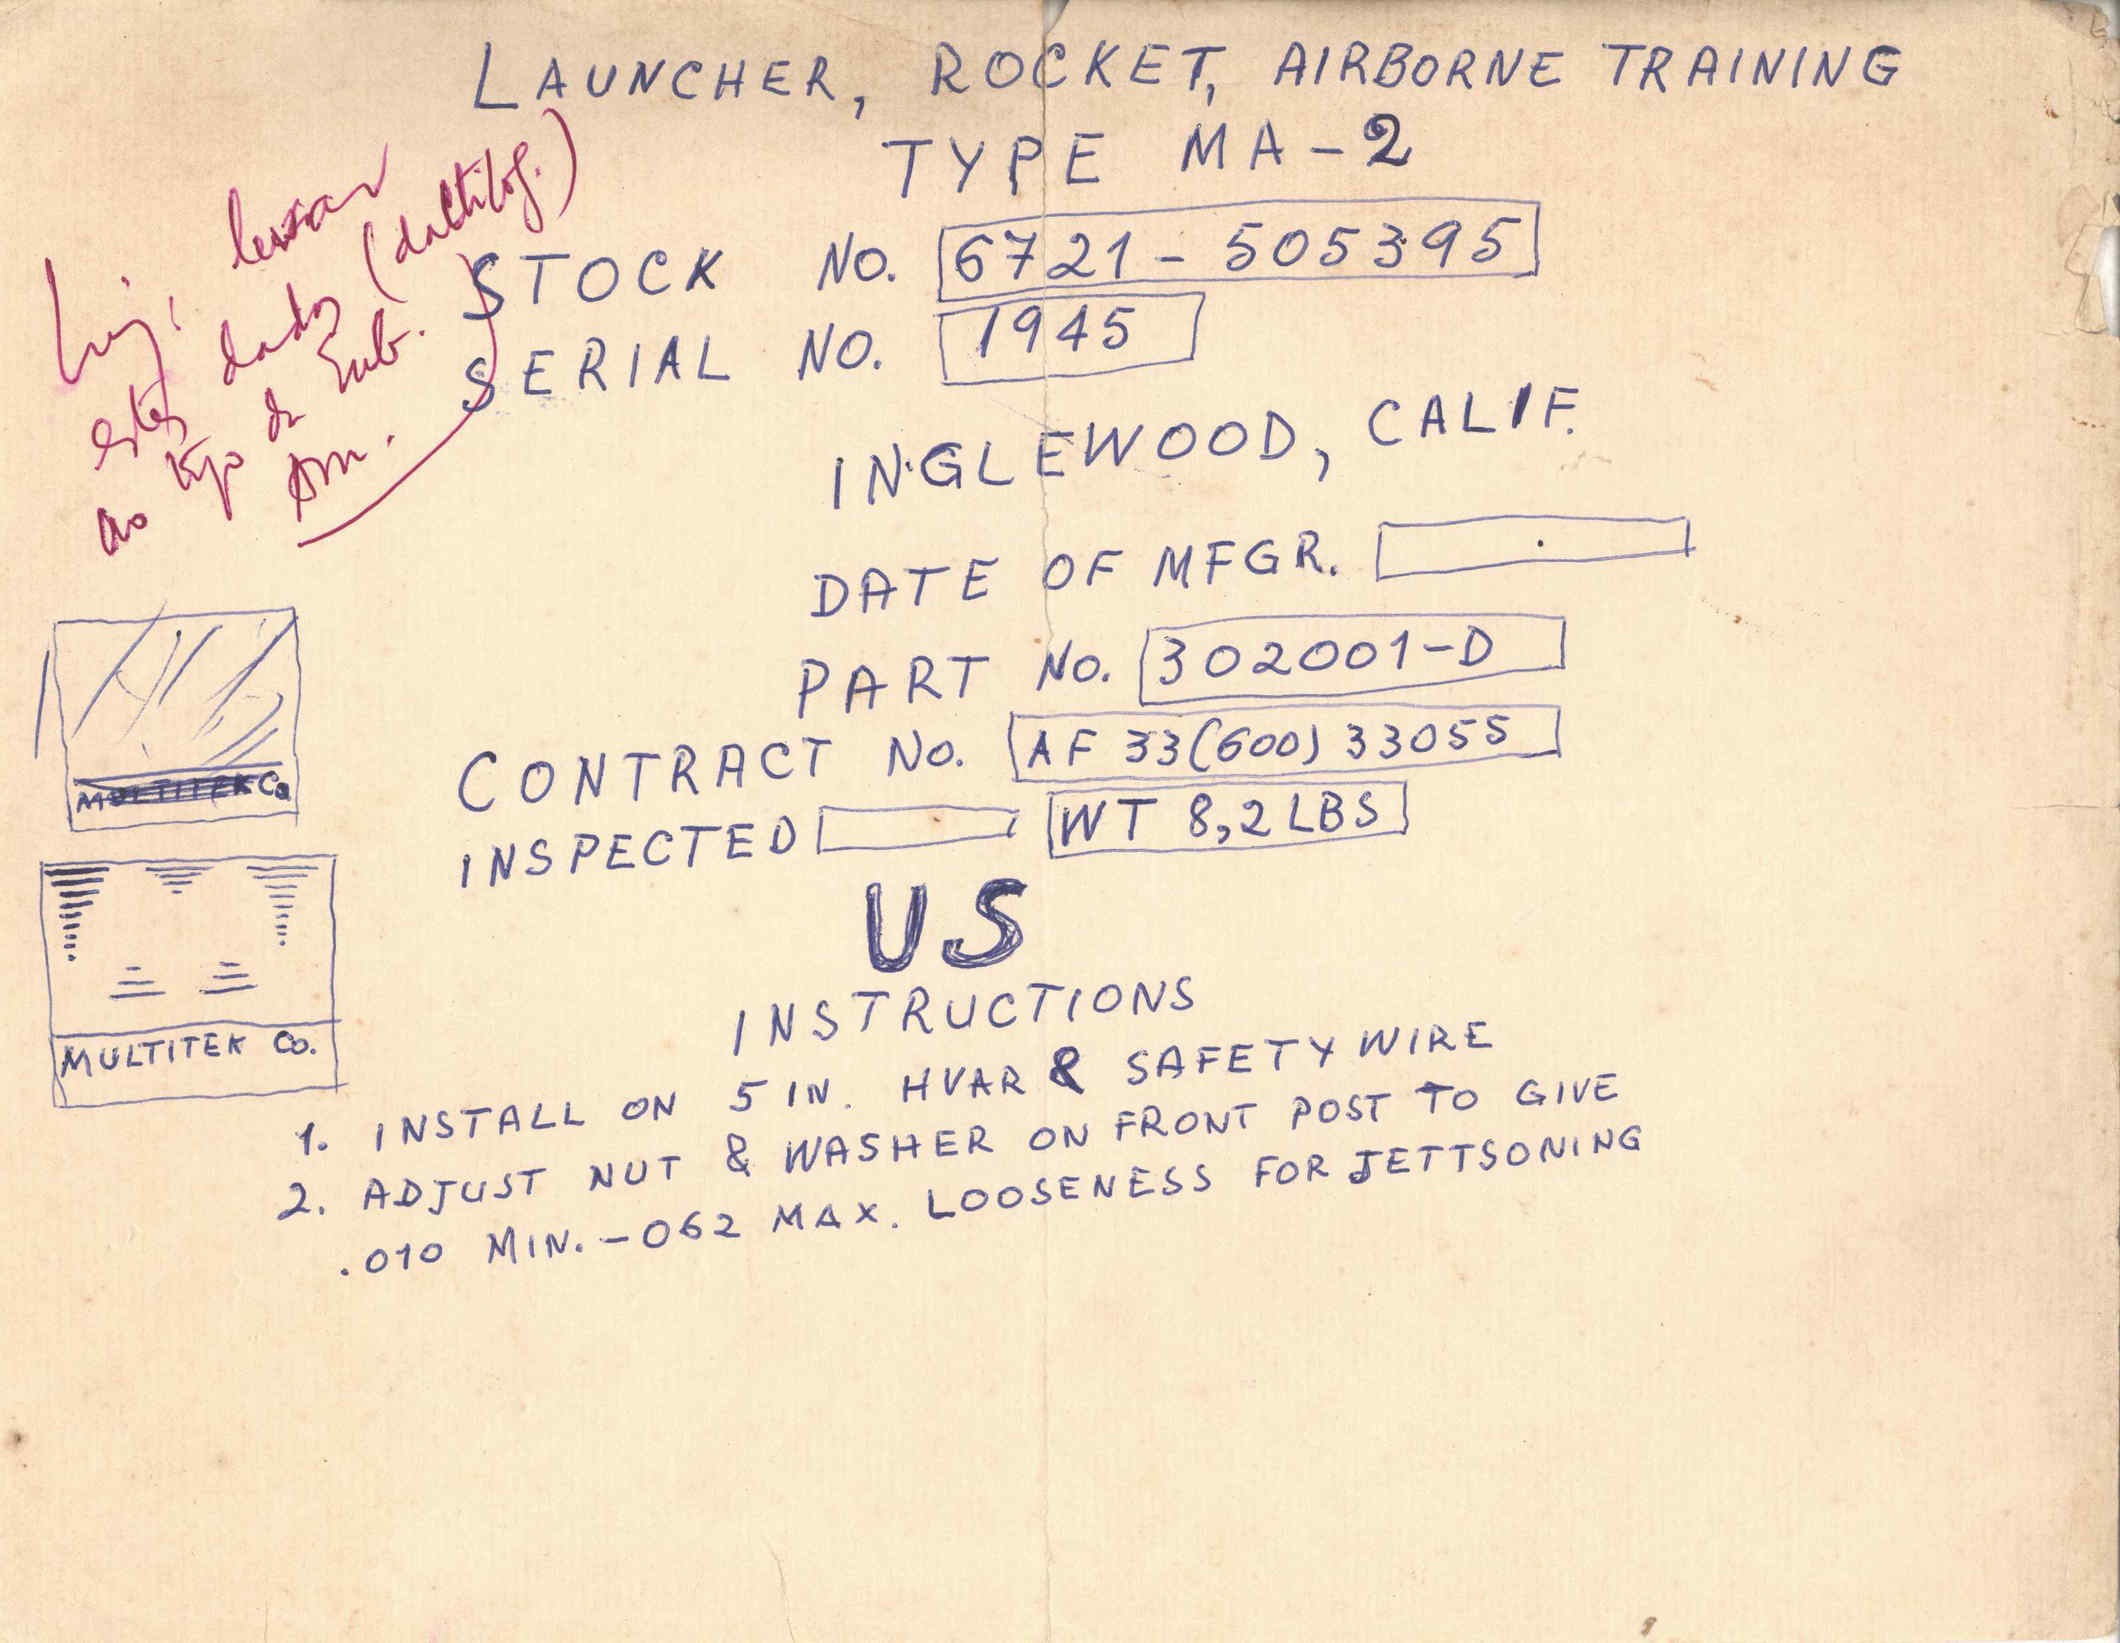 LAUNCHER, ROCKET, AIRBORNE TRAINING
TYPE MA-2
STOCK NO. 6721-505395
SERIAL NO. 1945
INGLEWOOD, CALIF.
DATE OF MFGR.
PART No. 302001-D
CONTRACT No. AF 33(600)33055
INSPECTED WT 8,2 LBS
US
INSTRUCTIONS
1. INSTALL ON 5 IN. HVAR & SAFETY WIRE
2. ADJUST NUT & WASHER ON FRONT POST TO GIVE
.010 MIN.-062 MAX. LOOSENESS FOR JETTSONING
estes dados (dactilog.)
ao
MULTITEK Co
MULTITEK Co.